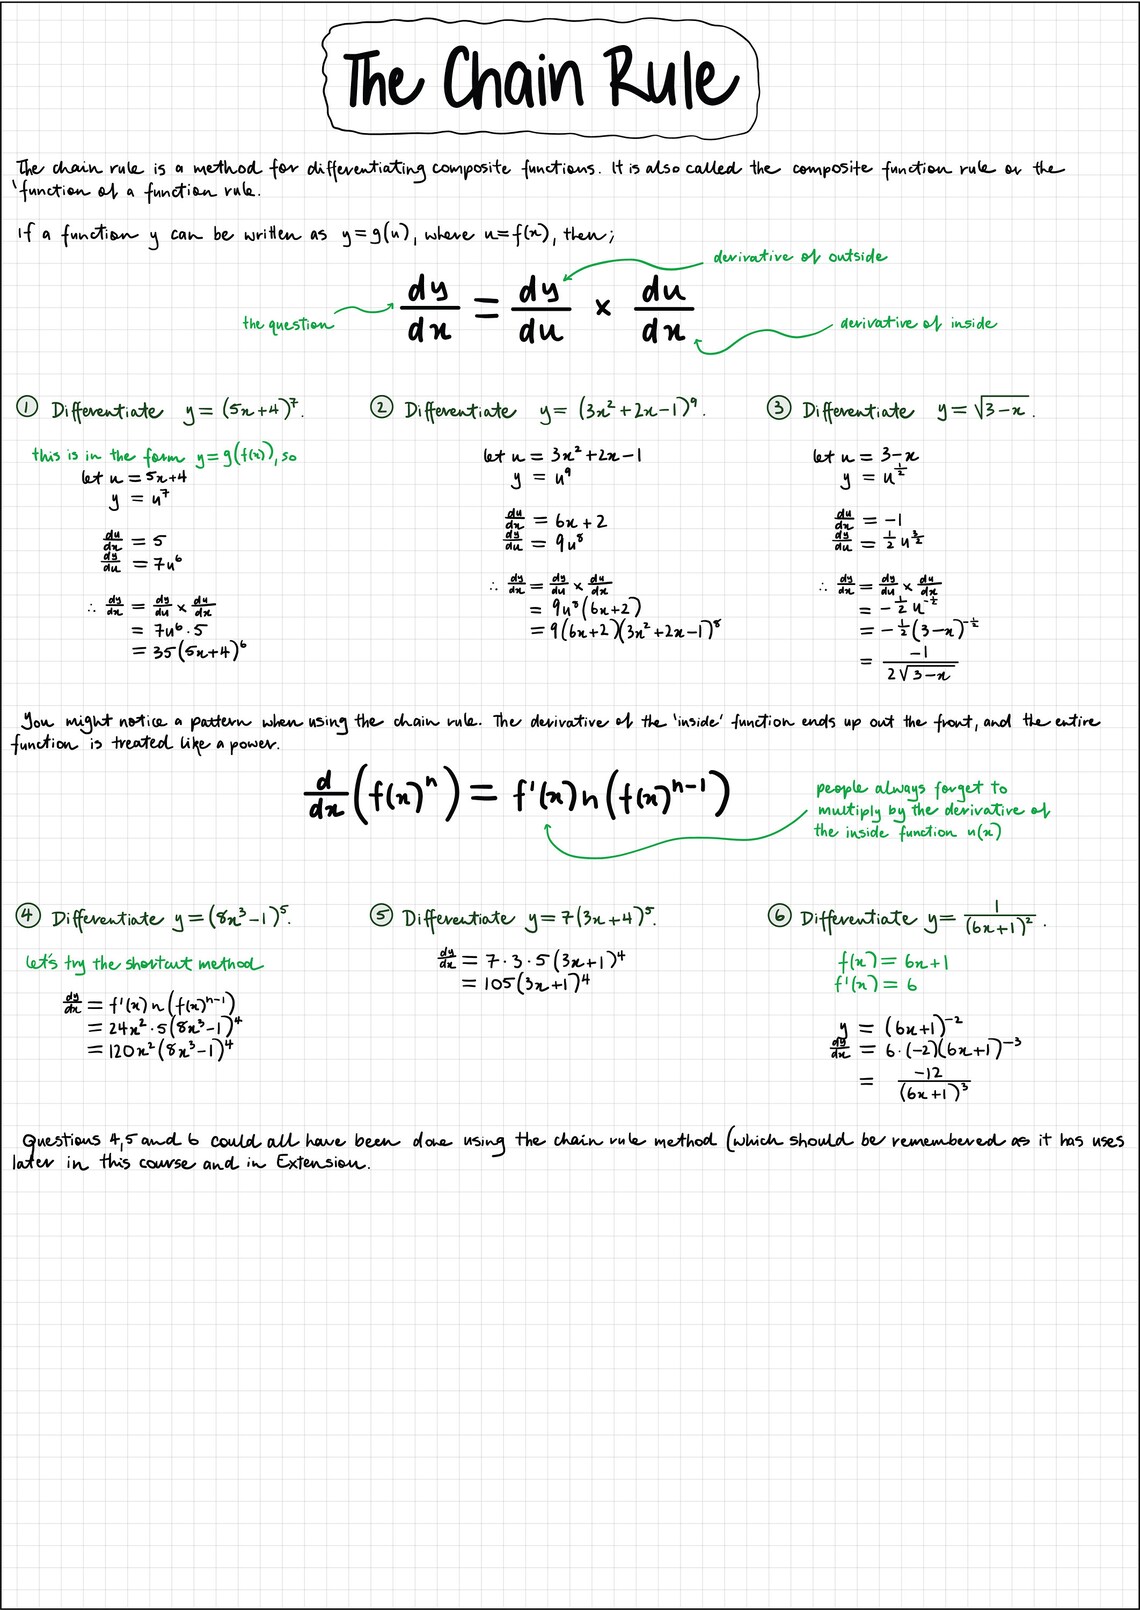 The Chain Rule
The chain rule is a method for differentiating composite functions. It is also called the composite function rule or the
'function of a function rule.
If a function y can be written as y=g(u), where u=f(x), then;
derivative of outside
dy/dx = dy/du × du/dx
the question
derivative of inside
① Differentiate y = (5x+4)⁷.
this is in the form y=g(f(x)), so
let u = 5x+4
y = u⁷
du/dx = 5
dy/du = 7u⁶
∴ dy/dx = dy/du × du/dx
= 7u⁶ · 5
= 35(5x+4)⁶
② Differentiate y = (3x²+2x-1)⁹.
let u = 3x²+2x-1
y = u⁹
du/dx = 6x+2
dy/du = 9u⁸
∴ dy/dx = dy/du × du/dx
= 9u⁸(6x+2)
= 9(6x+2)(3x²+2x-1)⁸
③ Differentiate y = √(3-x).
let u = 3-x
y = u^(1/2)
du/dx = -1
dy/du = 1/2 u^(3/2)
∴ dy/dx = dy/du × du/dx
= -1/2 u^(-1/2)
= -1/2 (3-x)^(-1/2)
= -1/(2√(3-x))
You might notice a pattern when using the chain rule. The derivative of the 'inside' function ends up out the front, and the entire
function is treated like a power.
d/dx (f(x)ⁿ) = f'(x) n (f(x)ⁿ⁻¹)
people always forget to
multiply by the derivative of
the inside function u(x)
④ Differentiate y = (8x³-1)⁵.
let's try the shortcut method
dy/dx = f'(x) n (f(x)ⁿ⁻¹)
= 24x² · 5(8x³-1)⁴
= 120x²(8x³-1)⁴
⑤ Differentiate y = 7(3x+4)⁵.
dy/dx = 7 · 3 · 5 (3x+1)⁴
= 105(3x+1)⁴
⑥ Differentiate y = 1/(6x+1)².
f(x) = 6x+1
f'(x) = 6
y = (6x+1)⁻²
dy/dx = 6·(-2)(6x+1)⁻³
= -12/(6x+1)³
Questions 4,5 and 6 could all have been done using the chain rule method (which should be remembered as it has uses
later in this course and in Extension.